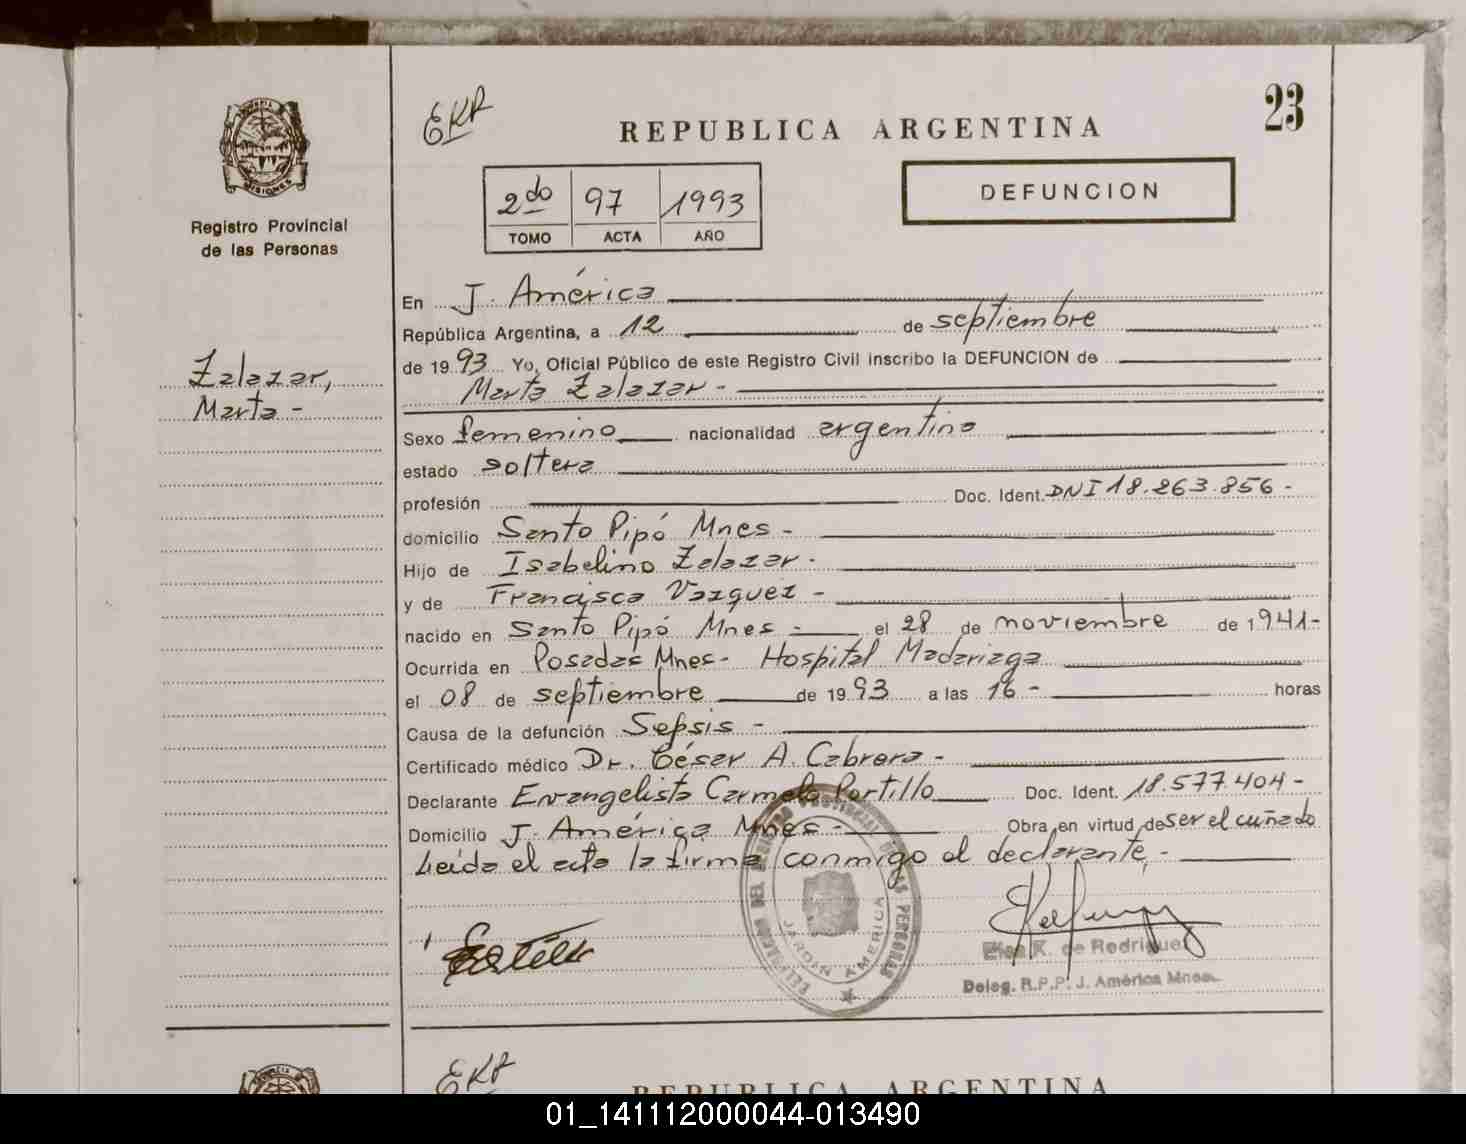 EKR
23
REPUBLICA ARGENTINA
MISIONES
Registro Provincial
de las Personas
DEFUNCION
2do 97 1993
TOMO ACTA AÑO
En J. América
República Argentina, a 12 de septiembre
de 1993 Yo, Oficial Público de este Registro Civil inscribo la DEFUNCION de
Marta Zalazar -
Zalazar,
Marta -
Sexo femenino nacionalidad argentina
estado soltera
profesión Doc. Ident. DNI 18.263.856 -
domicilio Santo Pipó Mnes -
Hijo de Isabelino Zalazar -
y de Francisca Vazquez -
nacido en Santo Pipó Mnes - el 28 de noviembre de 1941-
Ocurrida en Posadas Mnes- Hospital Madariaga
el 08 de septiembre de 1993 a las 16 - horas
Causa de la defunción Sepsis -
Certificado médico Dr. César A. Cabrera -
Declarante Evangelista Carmelo Portillo Doc. Ident. 18.577.404 -
Domicilio J. América Mnes - Obra en virtud de ser el cuñado
Leída el acta la firma conmigo el declarante, -
DELEGACION DEL REGISTRO PROVINCIAL DE LAS PERSONAS
JARDIN AMERICA
Elsa K. de Rodriguez
Deleg. R.P.P. J. América Mnes.
EKR
REPUBLICA ARGENTINA
01_141112000044-013490